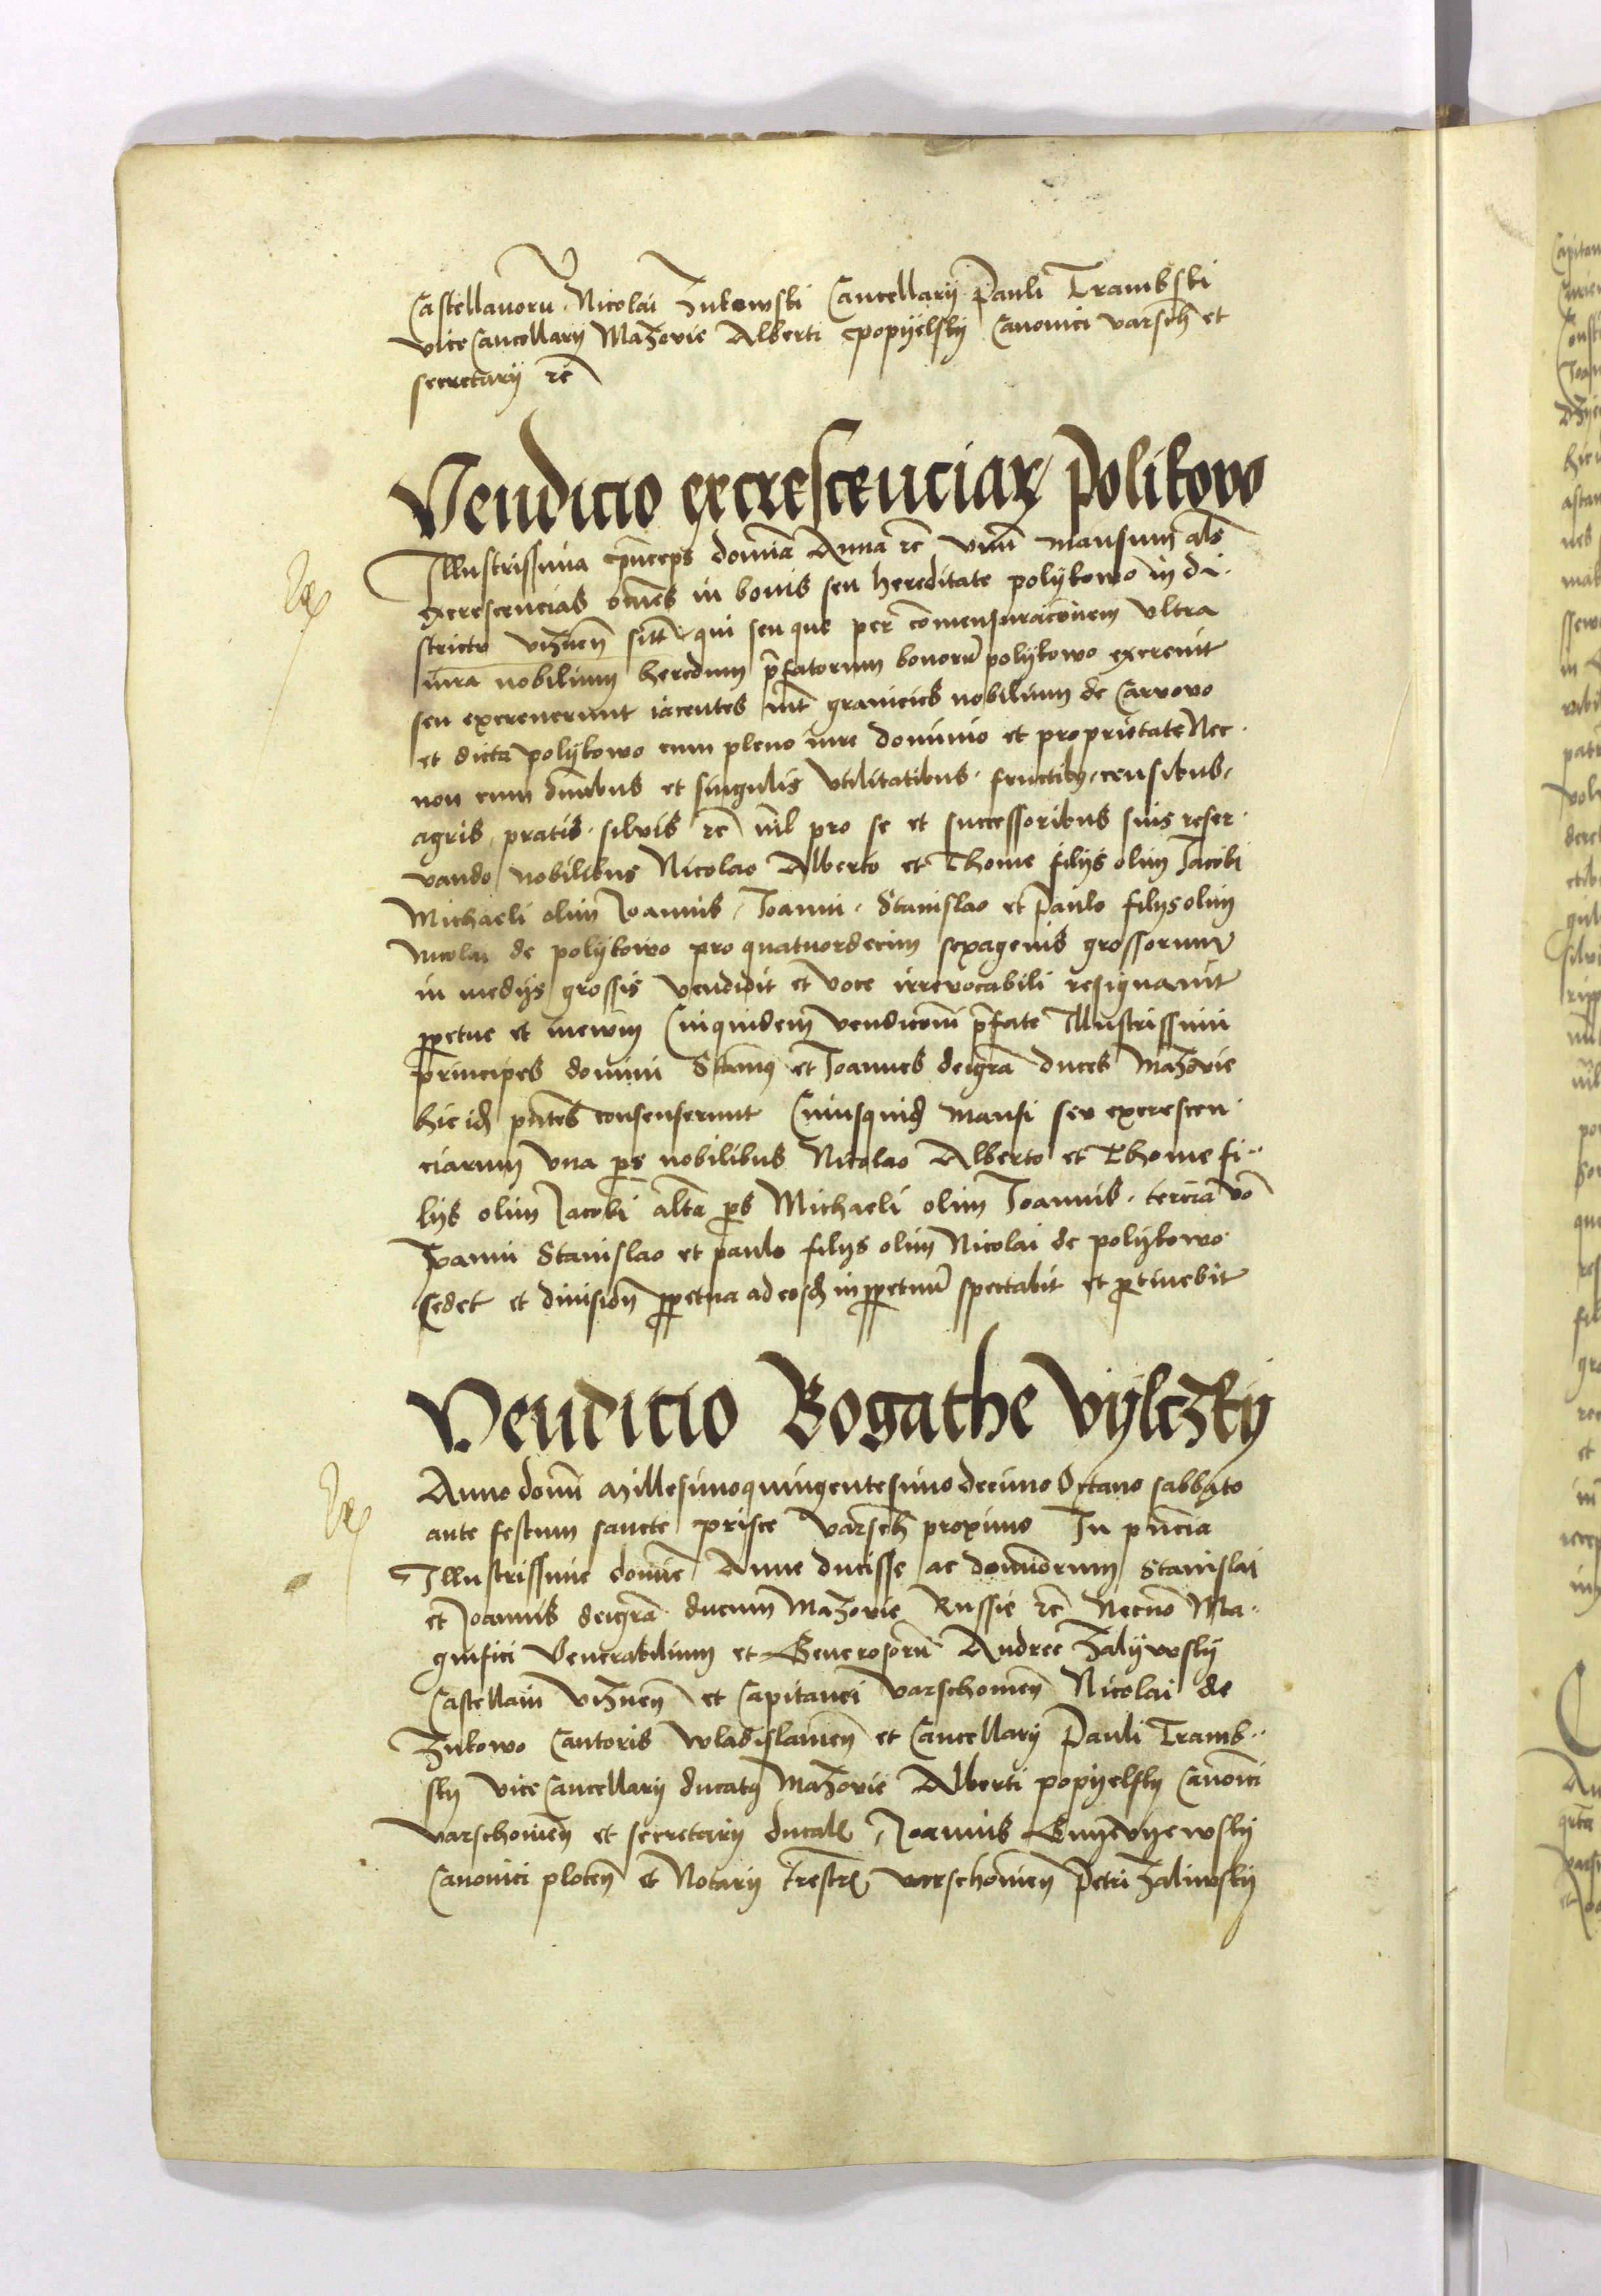 Castellanorū Nicolai Zukowski Cancellarij Pauli Trambski
vice Cancellarij Mazovie Alberti popijelskij Canonici varsch et
secretarij rc̄
Vendicio excrescenciarꝝ Polikowo
Illustrissima princeps domīa Anna rc̄ vnū mansum als̄
excrescencias om̄es in bonis seu hereditate polijkowo in di
strictu viznen̄ sitū qui seu que per com̄ensuracōnem vltra
iura nobilium heredum p̄fatorum bonorū polijkowo excrevit
seu excreuerunt iacentes int̄ granicies nobilium de Carvovo
et dicta polijkowo cum pleno iure dominio et proprietate Nec
non cum om̄ibus et singulis vtilitatibus fructibꝫ censibus
agris pratis siluis rc̄ nil pro se et successoribus suis reser
vando nobilibus Nicolao Alberto et Thome filijs olim Jacobi
Michaeli olim Joannis Joanni Stanislao et Paulo filijs olim
Nicolai de polijkowo pro quatuordecim sexagenis grossorum
in medijs grossis vendidit et voce irrevocabili resignauit
ꝑpetue et in ewm̄ Cuiquidem vendicōni p̄fate Illustrissimi
principes domini Stan̄us et Joannes dei gr̄a duces Mazovie
hic id̄ pn̄tes consenserunt Cuiusquid̄ mansi seu excrescen
ciarum vna ꝑs nobilibus Nicolao Alberto et Thome fi
lijs olim Jacobi alt̄a ꝑs Michaeli olim Joannis tercia vō
Joanni Stanislao et paulo filijs olim Nicolai de polijkowo
cedet et diuision̄ ꝑpetua ad eosd̄ in ꝑpetuū spectabit et ꝑtinebit
Vendicio Bogathe Vijlczkij
Anno domī Millesimoquingentesimo decimo Octauo sabbato
ante festum sancte prisce varsch proximo In pn̄cia
Illustrissime domīe Anne ducisse ac dominorum Stanislai
et Joannis dei gr̄a ducum Mazovie Russie rc̄ Necnō Ma
gnifici Venerabilium et Generosorū Andree Zalijwskij
Castellani viznen̄ et Capitanei varschouien̄ Nicolai de
Zukowo Cantoris wladislauien̄ et Cancellarij Pauli Tramb
skij vice Cancellarij ducatꝰ Mazovie Alberti popijelskij Canonici
varschouien̄ et secretarij ducal̄ Joannis Gnijewijewskij
Canonici plocen̄ et Notarij trēstrꝭ warschouien̄ Petri Zaliwskij